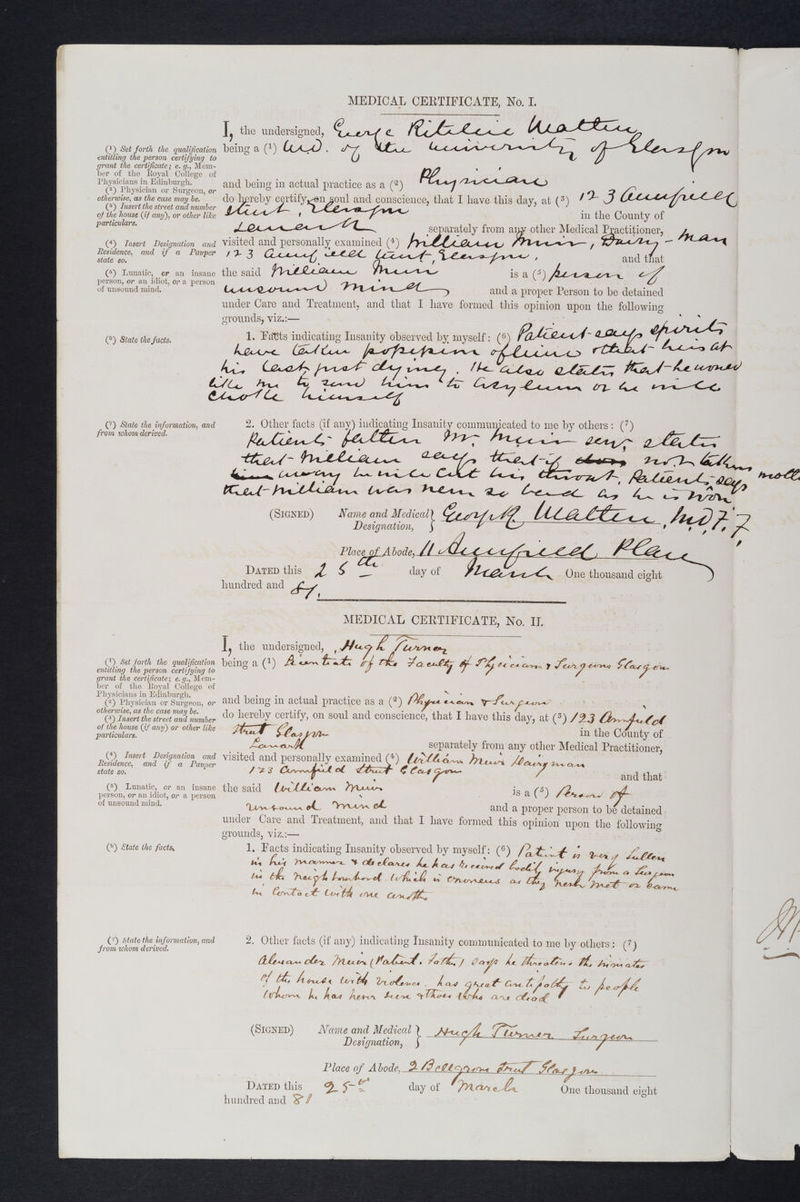 MEDICAL CERTIFICATE, No. I.
I, the undersigned, George Ritchie Watten
(1) Set forth the qualification entitling the person certifying to grant the certificate; e. g., Member of the Royal College of Physicians in Edinburgh.
being a (1) M.D. of the University of Glasgow
(2) Physician or Surgeon, or otherwise, as the case may be.
and being in actual practice as a (2) Physician
(3) Insert the street and number of the house (if any), or other like particulars.
do hereby certify, on soul and conscience, that I have this day, at (3) 123
Street, Glasgow in the County of
Lanark separately from any other Medical Practitioner,
(4) Insert Designation and Residence, and if a Pauper state so.
visited and personally examined (4) William Muir, Dairy-man
123 Street, Glasgow, and that
(5) Lunatic, or an insane person, or an idiot, or a person of unsound mind.
the said William Muir is a (5) person of
unsound mind and a proper Person to be detained
under Care and Treatment, and that I have formed this opinion upon the following
grounds, viz.:—
(6) State the facts.
1. Facts indicating Insanity observed by myself: (6) Patient says spirits
have taken possession of & that he is at
his last just dying. He also states that he would
like me to send him to Asylum or he will
choke himself
(7) State the information, and from whom derived.
2. Other facts (if any) indicating Insanity communicated to me by others: (7)
Patient's father Mr Muir senr states
that William says that if not taken
away he will cut his throat. Patient's mother
says that William was never so bad as he is now
(SIGNED) Name and Medical Designation, George R. Watten, M.D.
Place of Abode, 11 Place
DATED this 25th day of March One thousand eight
hundred and 81
MEDICAL CERTIFICATE, No. II.
I, the undersigned, Hugh Turner
(1) Set forth the qualification entitling the person certifying to grant the certificate; e. g., Member of the Royal College of Physicians in Edinburgh.
being a (1) Licentiate of the Faculty of Physicians & Surgeons Glasgow
(2) Physician or Surgeon, or otherwise, as the case may be.
and being in actual practice as a (2) Physician & Surgeon
(3) Insert the street and number of the house (if any) or other like particulars.
do hereby certify, on soul and conscience, that I have this day, at (3) 123
Street Glasgow in the County of
Lanark separately from any other Medical Practitioner,
(4) Insert Designation and Residence, and if a Pauper state so.
visited and personally examined (4) William Muir Dairyman
123 Street Glasgow and that
(5) Lunatic, or an insane person, or an idiot, or a person of unsound mind.
the said William Muir is a (5) Person of
unsound mind and a proper person to be detained
under Care and Treatment, and that I have formed this opinion upon the following
grounds, viz.:—
(6) State the facts.
1. Facts indicating Insanity observed by myself: (6) Patient is very sullen
in his manner & declares he has received bodily injury from a Surgeon
in the neighbourhood which is erroneous as they never met or came
in contact with one another
(7) State the information, and from whom derived.
2. Other facts (if any) indicating Insanity communicated to me by others: (7)
Alexander Muir (Patient's father) says he threatens the inmates
of the house with violence, has great antipathy to people
whom he has never seen & those who are dead
(SIGNED) Name and Medical Designation, Hugh Turner Surgeon
Place of Abode, 2 Bellgrove Street Glasgow
DATED this 25th day of March One thousand eight
hundred and 81